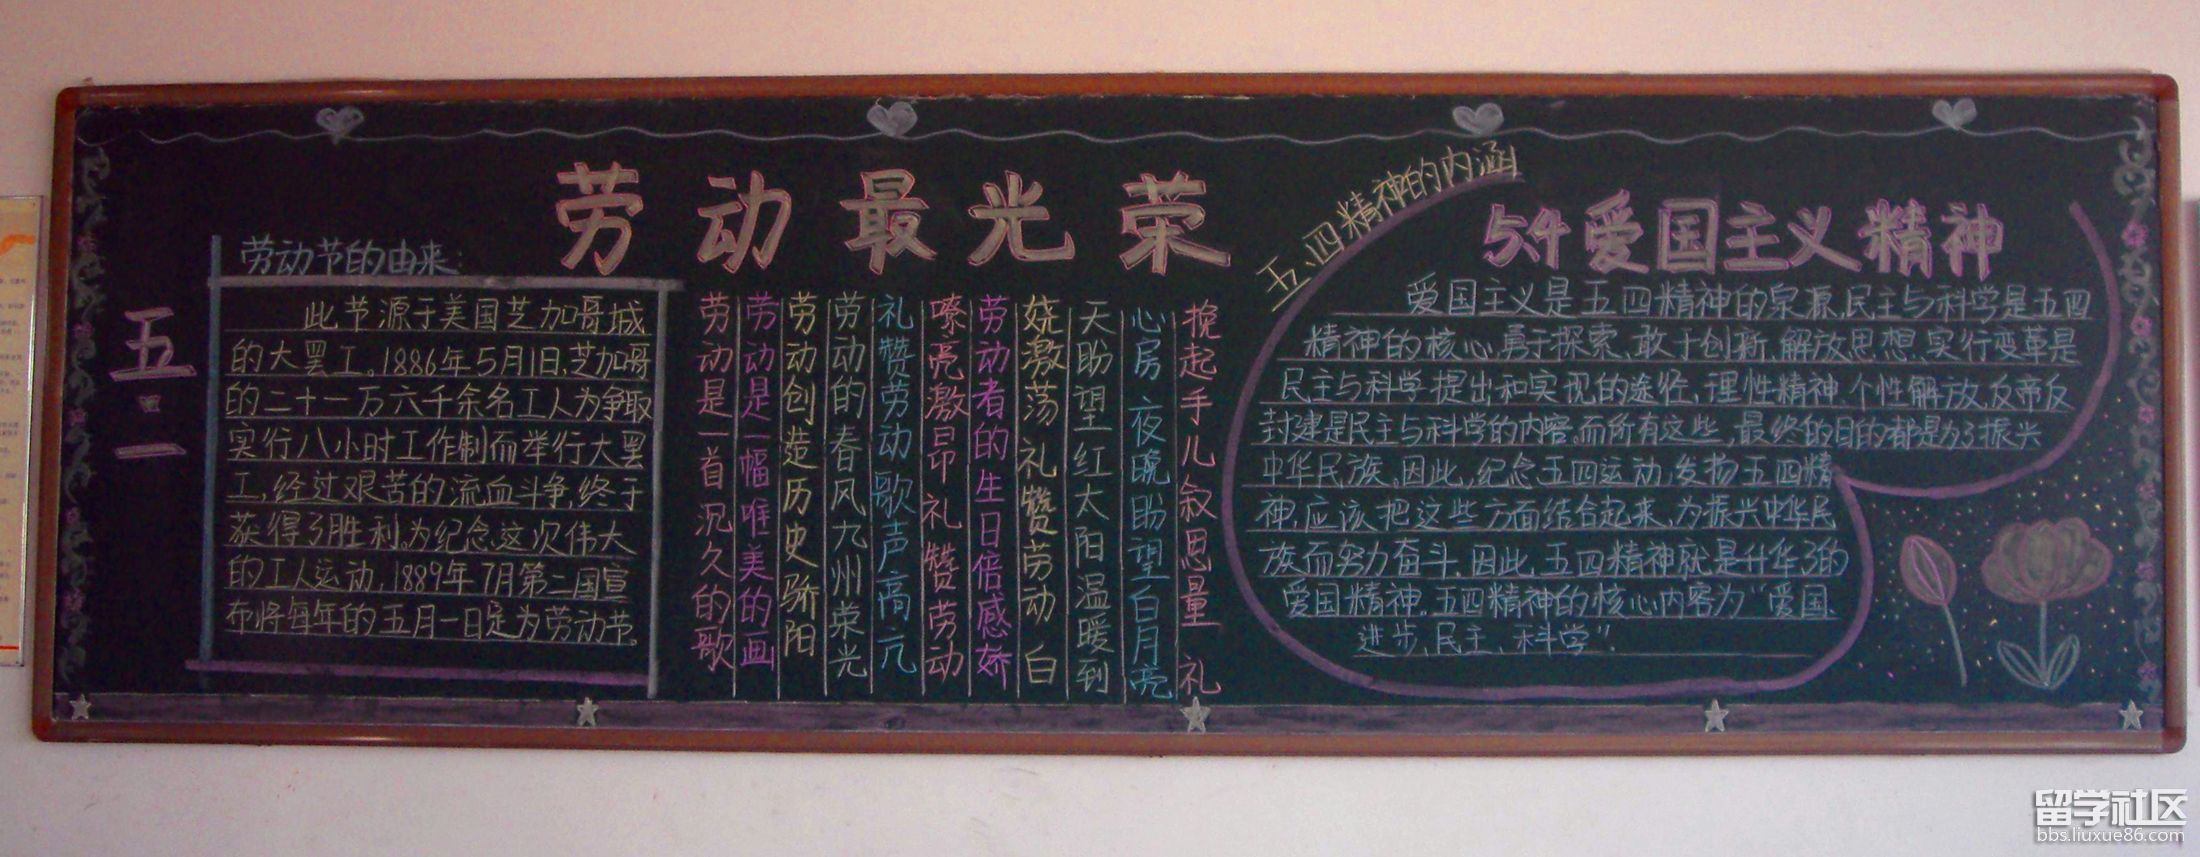 劳动最光荣
五·一
劳动节的由来:
此节源于美国芝加哥城
的大罢工。1886年5月1日,芝加哥
的二十一万六千余名工人为争取
实行八小时工作制而举行大罢
工,经过艰苦的流血斗争,终于
获得了胜利。为纪念这次伟大
的工人运动,1889年7月第二国宣
布将每年的五月一日定为劳动节。
劳动是一首沉久的歌
劳动是一幅唯美的画
劳动创造历史骄阳
劳动的春风九州荣光
礼赞劳动歌声高亢
嘹亮激昂礼赞劳动
劳动者的生日倍感娇
娆激荡礼赞劳动白
天盼望红太阳温暖到
心房夜晚盼望白月亮
挽起手儿叙思量礼
五、四精神的内涵
54爱国主义精神
爱国主义是五四精神的泉源,民主与科学是五四
精神的核心,勇于探索、敢于创新、解放思想、实行变革是
民主与科学提出和实现的途径,理性精神、个性解放、反帝反
封建是民主与科学的内容。而所有这些,最终的目的都是为了振兴
中华民族。因此,纪念五四运动,发扬五四精
神,应该把这些方面结合起来,为振兴中华民
族而努力奋斗,因此,五四精神就是升华了的
爱国精神。五四精神的核心内容为“爱国、
进步,民主、科学”.
留学社区
bbs.liuxue86.com